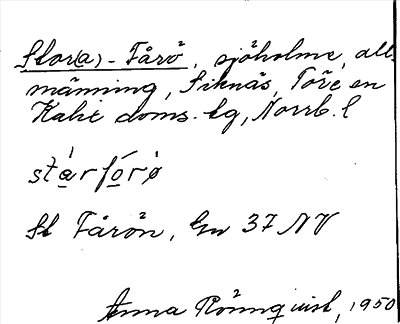 Stor(a)-Fårö, sjöholme, all-
männing, Siknäs, Töre sn
Kalix doms. lg, Norrb. l
starforö
St Fårön, Gn 37 NV
Anna Rönnqvist, 1950